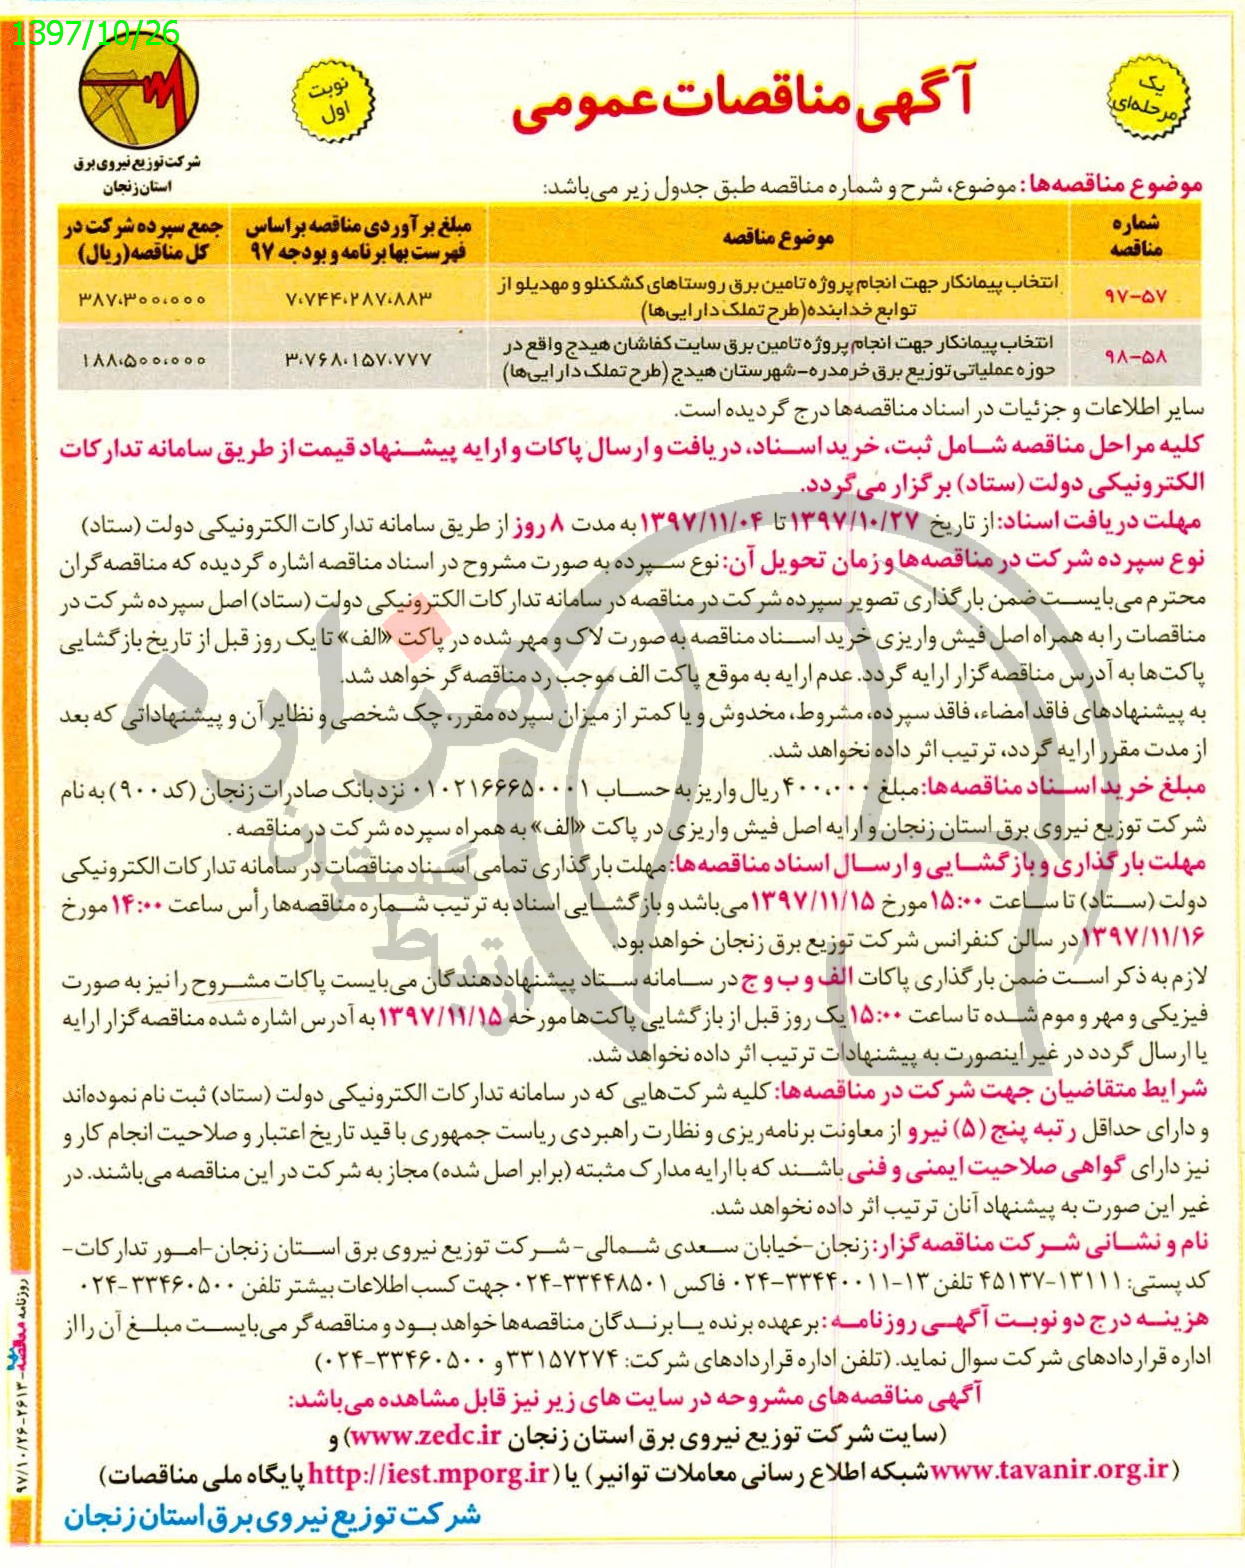 1397/10/26
یک
مرحله‌ای
آگهی مناقصات عمومی
نوبت
اول
شرکت توزیع نیروی برق
استان زنجان
موضوع مناقصه‌ها: موضوع، شرح و شماره مناقصه طبق جدول زیر می‌باشد:
شماره مناقصه
موضوع مناقصه
مبلغ برآوردی مناقصه براساس فهرست بها برنامه و بودجه ۹۷
جمع سپرده شرکت در کل مناقصه (ریال)
۹۷-۵۷
انتخاب پیمانکار جهت انجام پروژه تامین برق روستاهای کشکنلو و مهدیلو از
توابع خدابنده (طرح تملک دارایی‌ها)
۷،۷۴۴،۲۸۷،۸۸۳
۳۸۷،۳۰۰،۰۰۰
۹۸-۵۸
انتخاب پیمانکار جهت انجام پروژه تامین برق سایت کفاشان هیدج واقع در
حوزه عملیاتی توزیع برق خرمدره-شهرستان هیدج (طرح تملک دارایی‌ها)
۳،۷۶۸،۱۵۷،۷۷۷
۱۸۸،۵۰۰،۰۰۰
سایر اطلاعات و جزئیات در اسناد مناقصه‌ها درج گردیده است.
کلیه مراحل مناقصه شامل ثبت، خرید اسناد، دریافت و ارسال پاکات و ارایه پیشنهاد قیمت از طریق سامانه تدارکات
الکترونیکی دولت (ستاد) برگزار می‌گردد.
مهلت دریافت اسناد: از تاریخ ۱۳۹۷/۱۰/۲۷ تا ۱۳۹۷/۱۱/۰۴ به مدت ۸ روز از طریق سامانه تدارکات الکترونیکی دولت (ستاد)
نوع سپرده شرکت در مناقصه‌ها و زمان تحویل آن: نوع سپرده به صورت مشروح در اسناد مناقصه اشاره گردیده که مناقصه‌گران
محترم می‌بایست ضمن بارگذاری تصویر سپرده شرکت در مناقصه در سامانه تدارکات الکترونیکی دولت (ستاد) اصل سپرده شرکت در
مناقصات را به همراه اصل فیش واریزی خرید اسناد مناقصه به صورت لاک و مهر شده در پاکت «الف» تا یک روز قبل از تاریخ بازگشایی
پاکت‌ها به آدرس مناقصه‌گزار ارایه گردد. عدم ارایه به موقع پاکت الف موجب رد مناقصه‌گر خواهد شد.
به پیشنهادهای فاقد امضاء، فاقد سپرده، مشروط، مخدوش و یا کمتر از میزان سپرده مقرر، چک شخصی و نظایر آن و پیشنهاداتی که بعد
از مدت مقرر ارایه گردد، ترتیب اثر داده نخواهد شد.
مبلغ خرید اسناد مناقصه‌ها: مبلغ ۴۰۰،۰۰۰ ریال واریز به حساب ۰۱۰۲۱۶۶۶۵۰۰۰۱ نزد بانک صادرات زنجان (کد ۹۰۰) به نام
شرکت توزیع نیروی برق استان زنجان و ارایه اصل فیش واریزی در پاکت «الف» به همراه سپرده شرکت در مناقصه .
مهلت بارگذاری و بازگشایی و ارسال اسناد مناقصه‌ها: مهلت بارگذاری تمامی اسناد مناقصات در سامانه تدارکات الکترونیکی
دولت (ستاد) تا ساعت ۱۵:۰۰ مورخ ۱۳۹۷/۱۱/۱۵ می‌باشد و بازگشایی اسناد به ترتیب شماره مناقصه‌ها رأس ساعت ۱۴:۰۰ مورخ
۱۳۹۷/۱۱/۱۶ در سالن کنفرانس شرکت توزیع برق زنجان خواهد بود.
لازم به ذکر است ضمن بارگذاری پاکات الف و ب و ج در سامانه ستاد پیشنهاددهندگان می‌بایست پاکات مشروح را نیز به صورت
فیزیکی و مهر و موم شده تا ساعت ۱۵:۰۰ یک روز قبل از بازگشایی پاکت‌ها مورخه ۱۳۹۷/۱۱/۱۵ به آدرس اشاره شده مناقصه‌گزار ارایه
یا ارسال گردد در غیر اینصورت به پیشنهادات ترتیب اثر داده نخواهد شد.
شرایط متقاضیان جهت شرکت در مناقصه‌ها: کلیه شرکت‌هایی که در سامانه تدارکات الکترونیکی دولت (ستاد) ثبت نام نموده‌اند
و دارای حداقل رتبه پنج (۵) نیرو از معاونت برنامه‌ریزی و نظارت راهبردی ریاست جمهوری با قید تاریخ اعتبار و صلاحیت انجام کار و
نیز دارای گواهی صلاحیت ایمنی و فنی باشند که با ارایه مدارک مثبته (برابر اصل شده) مجاز به شرکت در این مناقصه می‌باشند. در
غیر این صورت به پیشنهاد آنان ترتیب اثر داده نخواهد شد.
نام و نشانی شرکت مناقصه‌گزار: زنجان-خیابان سعدی شمالی-شرکت توزیع نیروی برق استان زنجان-امور تدارکات-
کدپستی: ۱۳۱۱۱-۴۵۱۳۷ تلفن ۱۳-۳۳۴۴۰۰۱۱-۰۲۴ فاکس ۳۳۴۴۸۵۰۱-۰۲۴ جهت کسب اطلاعات بیشتر تلفن ۳۳۴۶۰۵۰۰-۰۲۴
هزینه درج دو نوبت آگهی روزنامه: برعهده برنده یا برندگان مناقصه‌ها خواهد بود و مناقصه‌گر می‌بایست مبلغ آن را از
اداره قراردادهای شرکت سوال نماید. (تلفن اداره قراردادهای شرکت: ۳۳۱۵۷۲۷۴ و ۳۳۴۶۰۵۰۰-۰۲۴)
آگهی مناقصه‌های مشروحه در سایت های زیر نیز قابل مشاهده می‌باشد:
(سایت شرکت توزیع نیروی برق استان زنجان www.zedc.ir) و
(www.tavanir.org.ir شبکه اطلاع رسانی معاملات توانیر) یا (http://iest.mporg.ir پایگاه ملی مناقصات)
شرکت توزیع نیروی برق استان زنجان
روزنامه مناقصه-۲۶۱۳-۹۷/۱۰/۲۶
هزاره
ارتباط
گستران